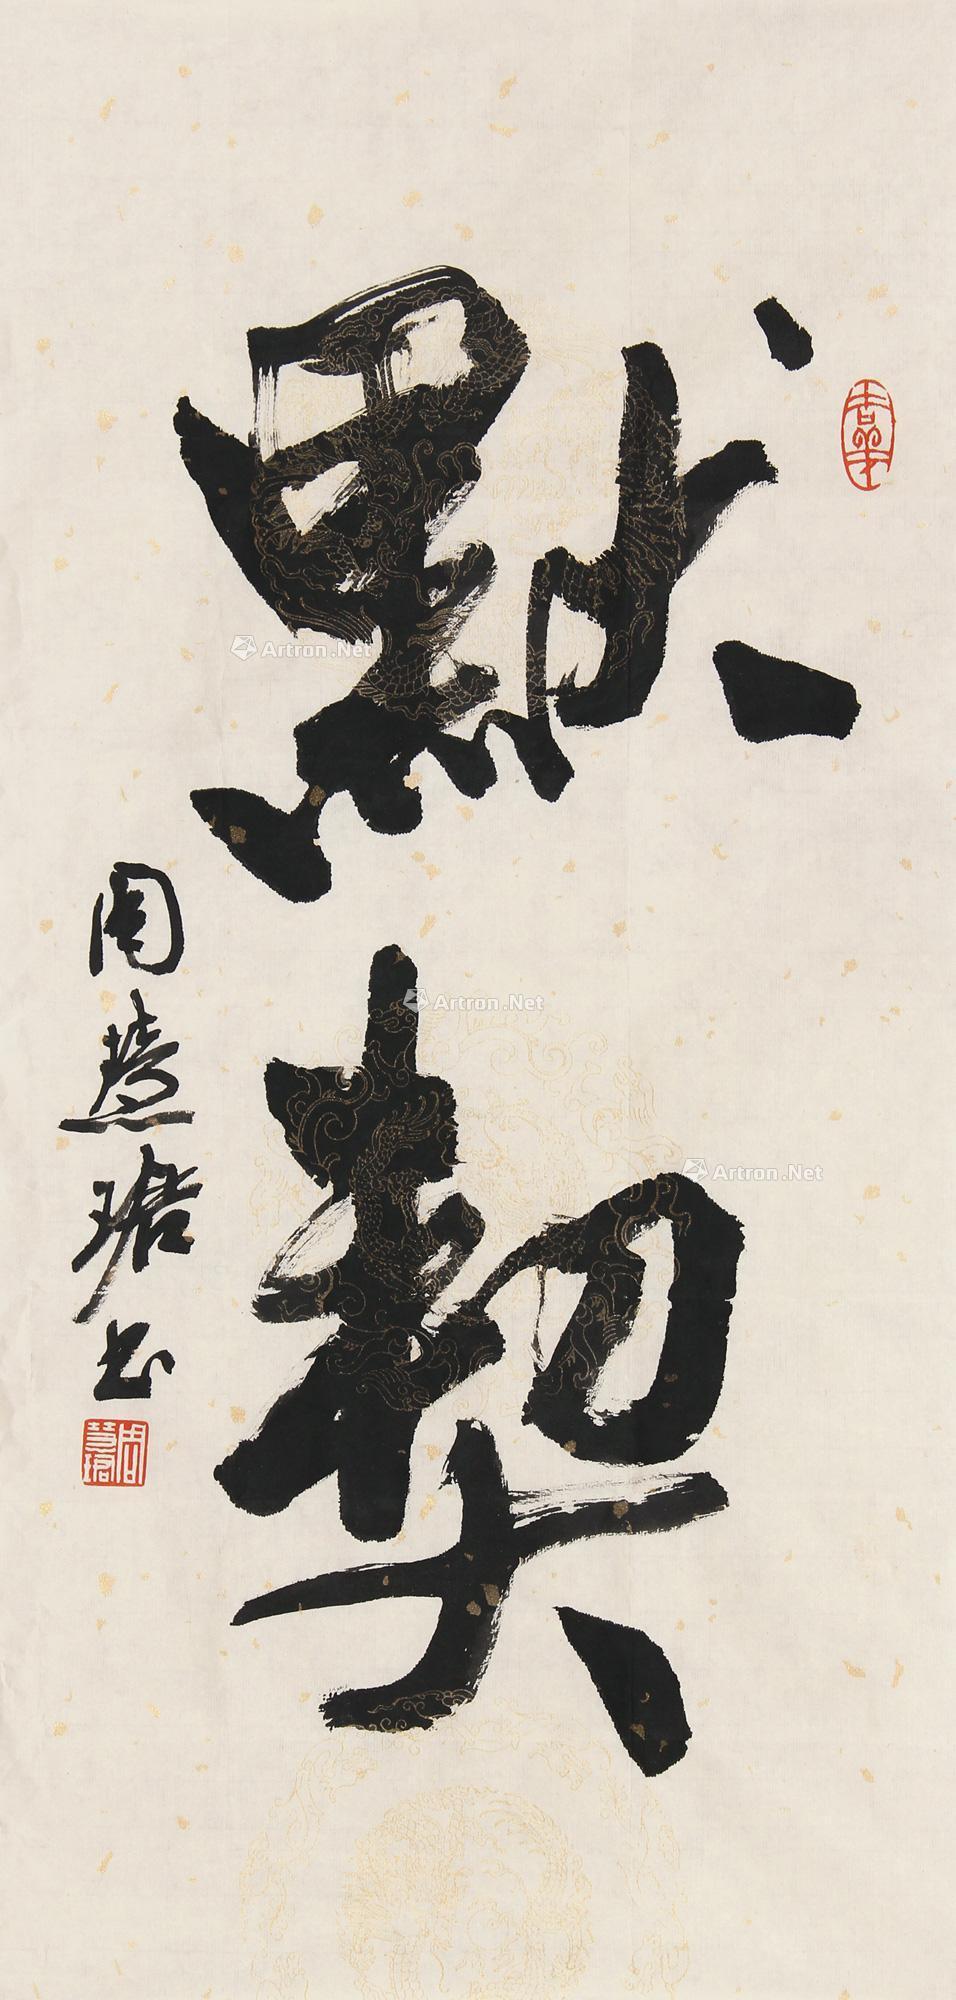 默契
周慧珺书
周慧珺
Artron.Net
Artron.Net
Artron.Net